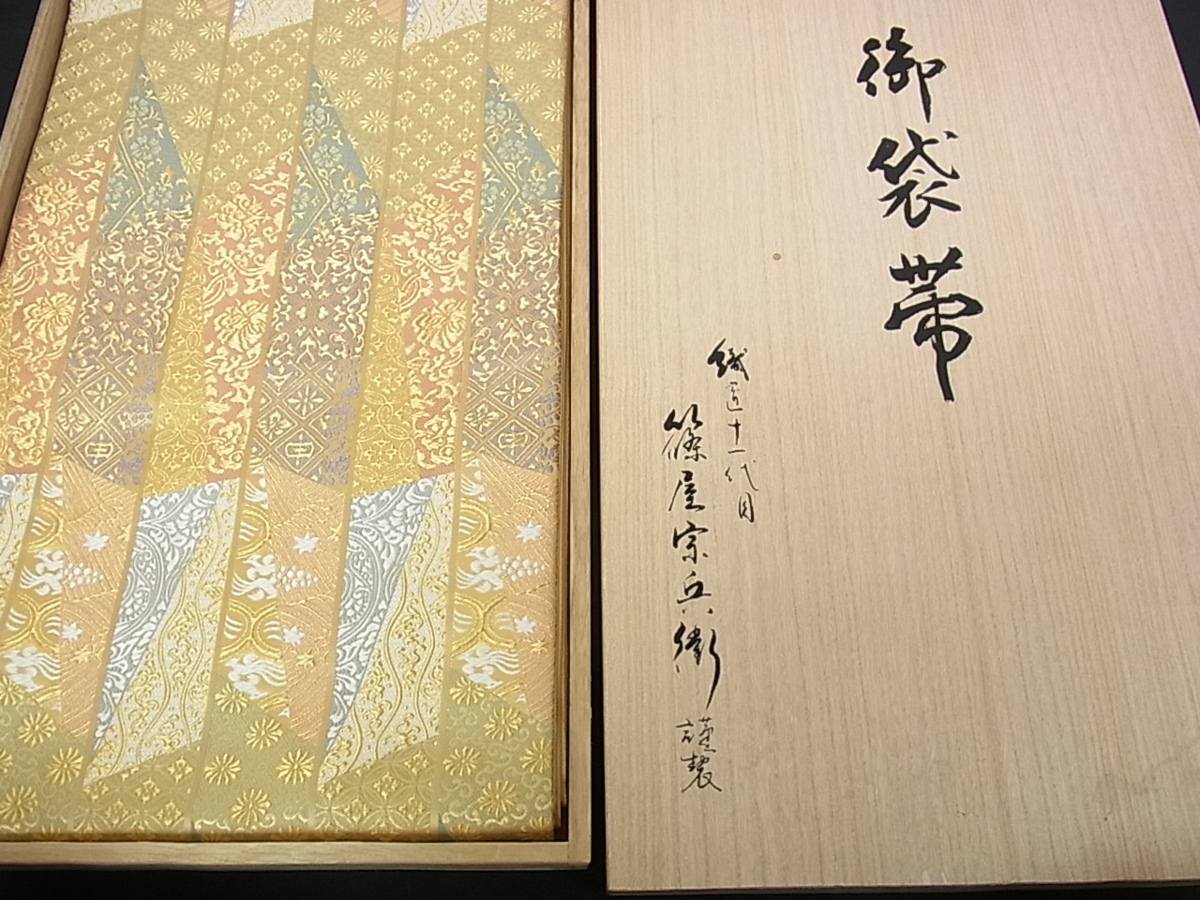 御袋帯
織匠十一代目
篠屋宗兵衛
謹製